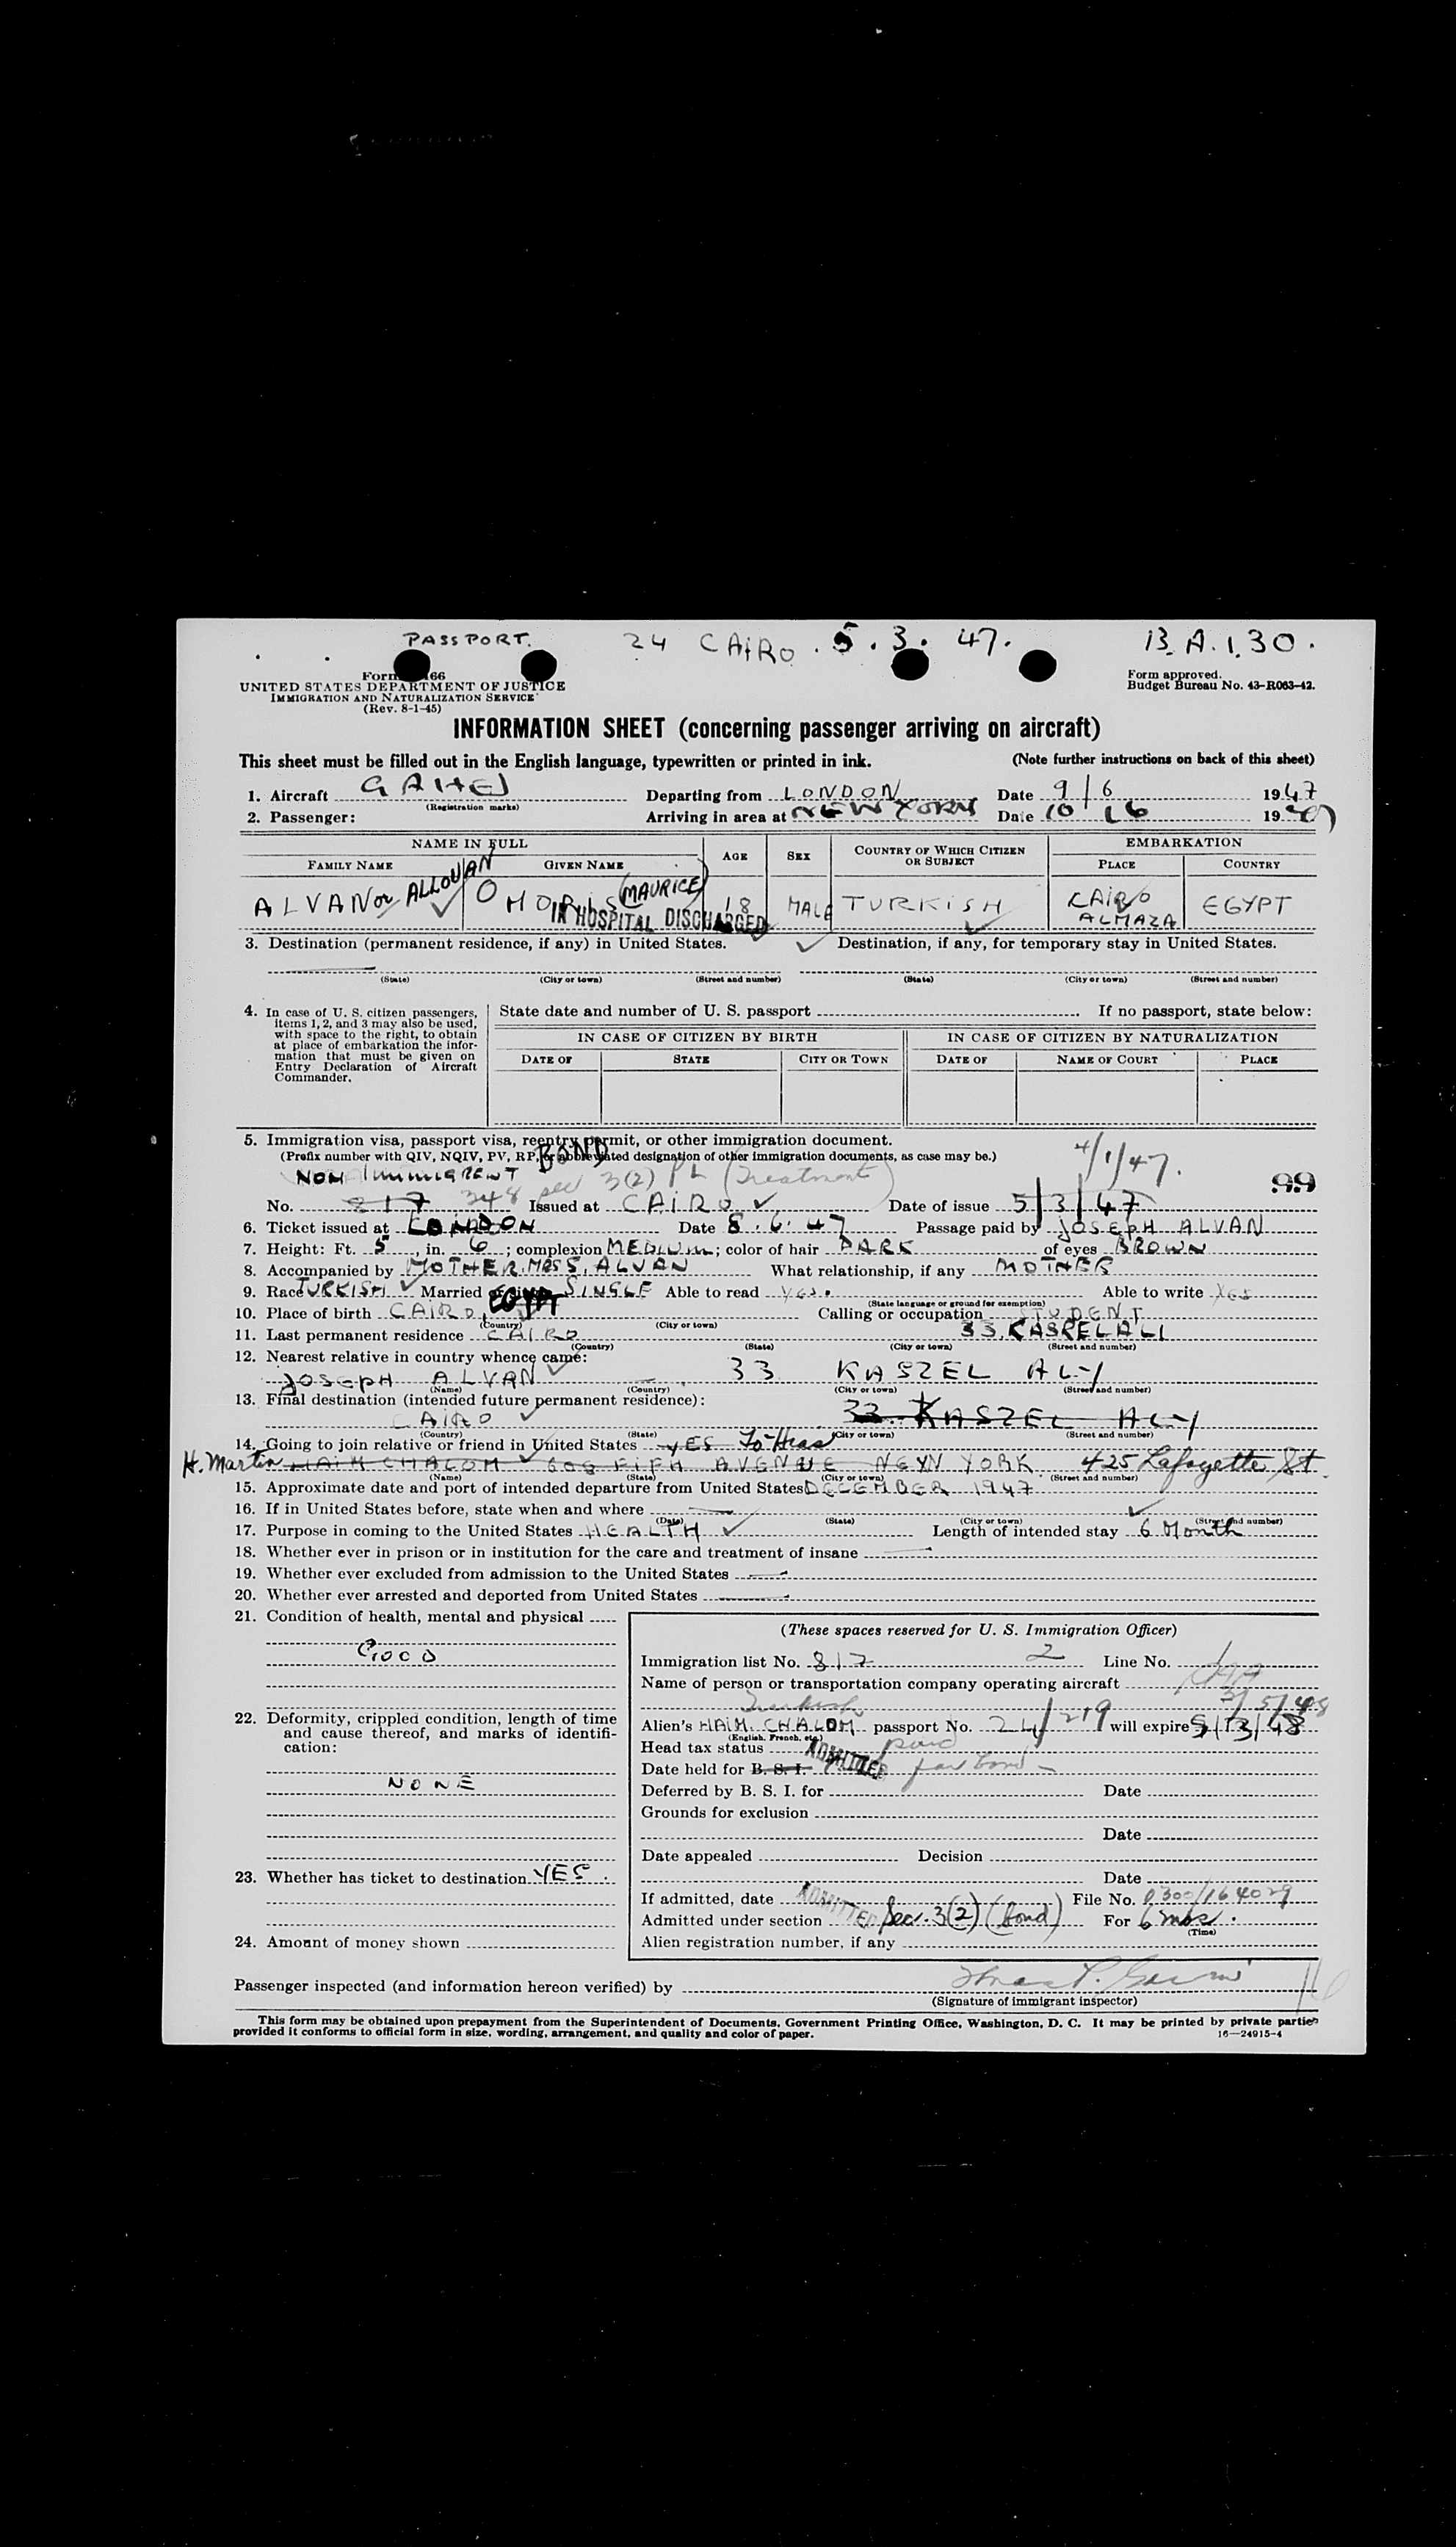 PASSPORT. 24 CAIRO . 5 . 3 . 47. B.A.1.30.
UNITED STATES DEPARTMENT OF JUSTICE
IMMIGRATION AND NATURALIZATION SERVICE
(Rev. 8-1-45)
Form approved.
Budget Bureau No. 43-R063-42.
INFORMATION SHEET (concerning passenger arriving on aircraft)
This sheet must be filled out in the English language, typewritten or printed in ink. (Note further instructions on back of this sheet)
1. Aircraft GAHEJ Departing from LONDON Date 9/6 1947
(Registration marks)
2. Passenger: Arriving in area at NEW YORK Date 10 6 19
NAME IN FULL
FAMILY NAME GIVEN NAME AGE SEX COUNTRY OF WHICH CITIZEN OR SUBJECT EMBARKATION PLACE COUNTRY
ALVAN or ALLOUAN MORIS (MAURICE) 18 MALE TURKISH CAIRO ALMAZA EGYPT
IN HOSPITAL DISCHARGED
3. Destination (permanent residence, if any) in United States. Destination, if any, for temporary stay in United States.
(State) (City or town) (Street and number) (State) (City or town) (Street and number)
4. In case of U. S. citizen passengers, items 1, 2, and 3 may also be used, with space to the right, to obtain at place of embarkation the information that must be given on Entry Declaration of Aircraft Commander.
State date and number of U. S. passport If no passport, state below:
IN CASE OF CITIZEN BY BIRTH IN CASE OF CITIZEN BY NATURALIZATION
DATE OF STATE CITY OR TOWN DATE OF NAME OF COURT PLACE
5. Immigration visa, passport visa, reentry permit, or other immigration document.
(Prefix number with QIV, NQIV, PV, RP, or abbreviated designation of other immigration documents, as case may be.) 4/1/47.
BOND
NON IMMIGRENT 348 sec 3(2) PL (Treatment) 99
No. 817 Issued at CAIRO Date of issue 5/3/47
6. Ticket issued at LONDON Date 8.6.47 Passage paid by JOSEPH ALVAN
7. Height: Ft. 5, in. 6; complexion MEDIUM; color of hair DARK of eyes BROWN
8. Accompanied by MOTHER. MRS S. ALVAN What relationship, if any MOTHER
9. Race TURKISH Married or single SINGLE Able to read YES. Able to write YES
(State language or ground for exemption)
10. Place of birth CAIRO, EGYPT Calling or occupation STUDENT
(Country) (City or town)
11. Last permanent residence CAIRO 33. KASRELALI
(Country) (State) (City or town) (Street and number)
12. Nearest relative in country whence came:
JOSEPH ALVAN 33 KASZEL ALY
(Name) (Country) (City or town) (Street and number)
13. Final destination (intended future permanent residence):
CAIRO 33 KASZEL ALY
(Country) (State) (City or town) (Street and number)
14. Going to join relative or friend in United States YES To Hias
H. Martin HAIM CHALOM 608 FIFH AVENUE NEYN YORK 425 Lafayette St.
(Name) (State) (City or town) (Street and number)
15. Approximate date and port of intended departure from United States DECEMBER 1947
16. If in United States before, state when and where
(Date) (State) (City or town) (Street and number)
17. Purpose in coming to the United States HEALTH Length of intended stay 6 Month
18. Whether ever in prison or in institution for the care and treatment of insane
19. Whether ever excluded from admission to the United States
20. Whether ever arrested and deported from United States
21. Condition of health, mental and physical
GOOD
22. Deformity, crippled condition, length of time and cause thereof, and marks of identification:
NONE
23. Whether has ticket to destination YES.
24. Amount of money shown
(These spaces reserved for U. S. Immigration Officer)
Immigration list No. 817 2 Line No.
Name of person or transportation company operating aircraft
Turkish 3/5/48
Alien's HAIM. CHALOM passport No. 24/219 will expire 5/3/48
(English, French, etc.)
Head tax status paid
Date held for B. S. I. ADMITTED for bond
Deferred by B. S. I. for Date
Grounds for exclusion
Date
Date appealed Decision
Date
If admitted, date ADMITTED File No. 0300/164029
Admitted under section Sec. 3(2) (bond) For 6 mos.
(Time)
Alien registration number, if any
Passenger inspected (and information hereon verified) by
(Signature of immigrant inspector)
This form may be obtained upon prepayment from the Superintendent of Documents, Government Printing Office, Washington, D. C. It may be printed by private parties
provided it conforms to official form in size, wording, arrangement, and quality and color of paper. 16—24915-4